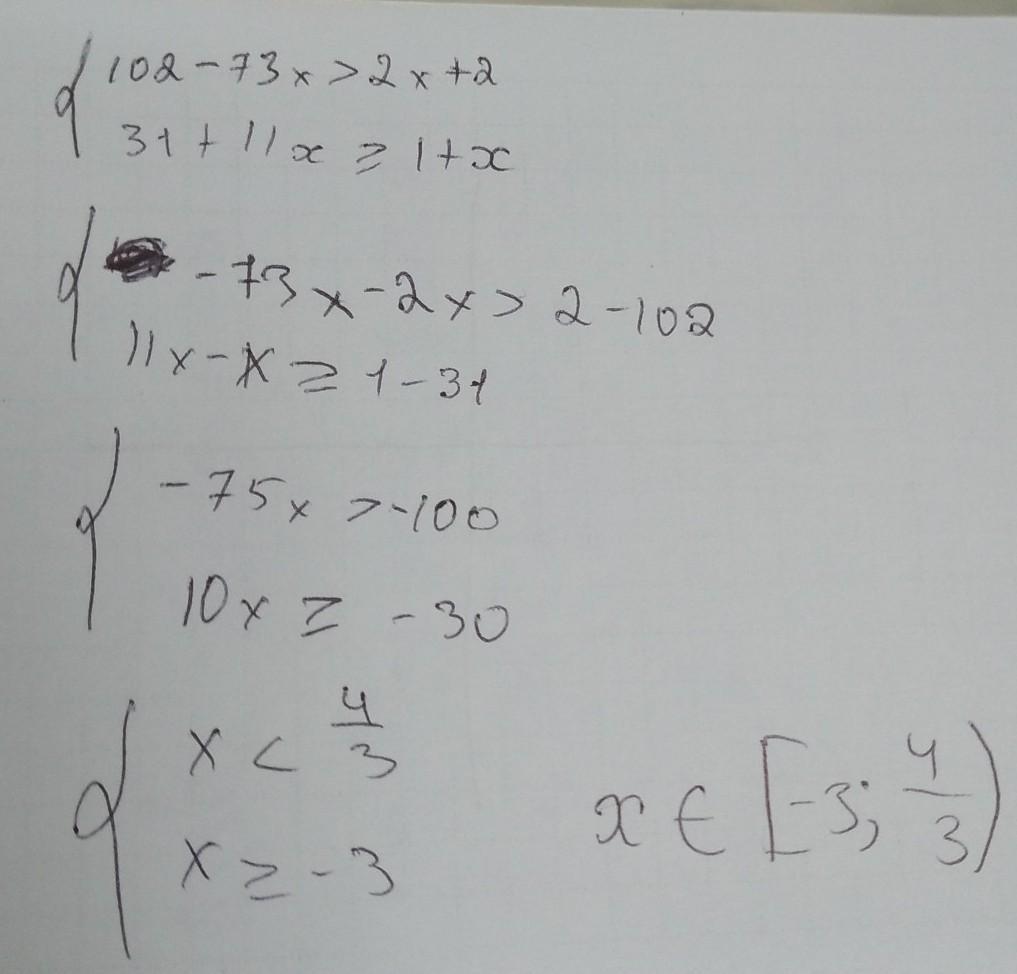 { 102 - 73x > 2x + 2
31 + 11x ≥ 1 + x
{ - 73x - 2x > 2 - 102
11x - x ≥ 1 - 31
{ - 75x > -100
10x ≥ - 30
{ x < 4/3
x ≥ - 3
x ∈ [-3; 4/3)